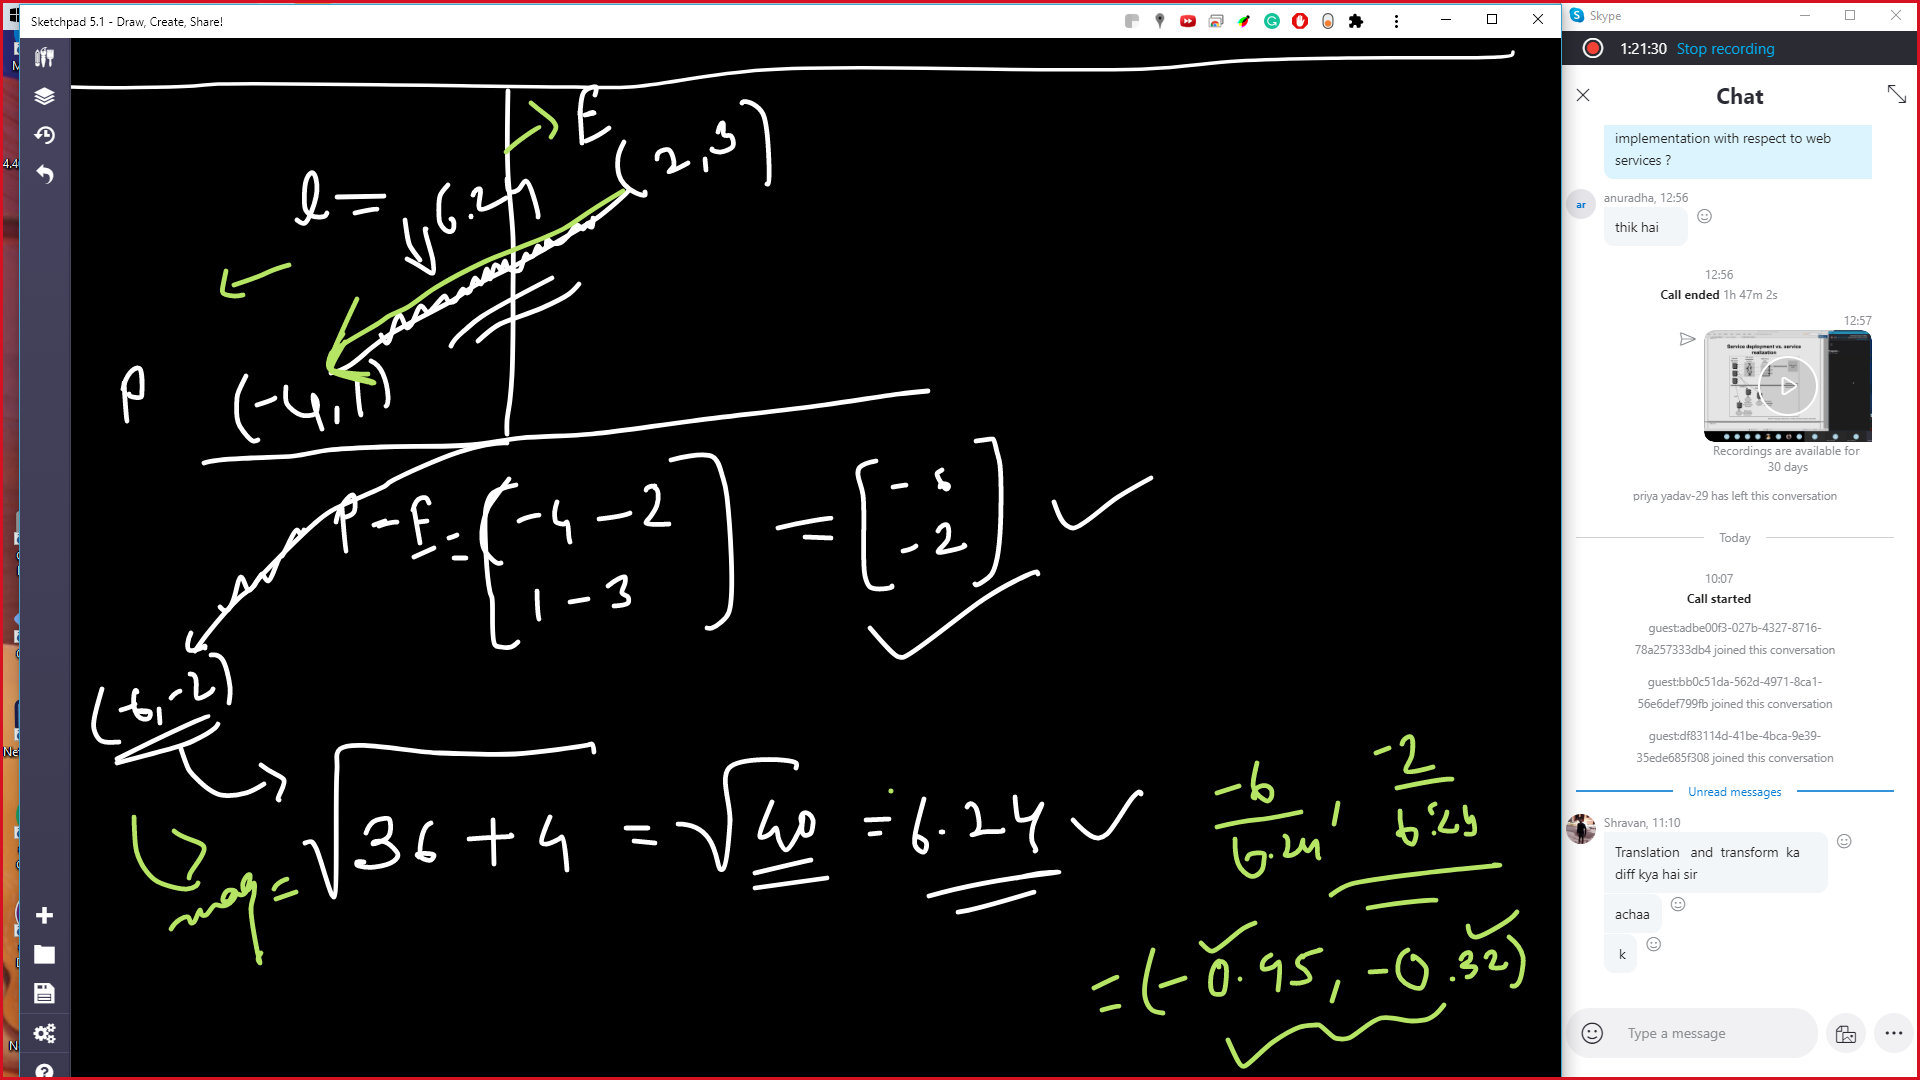 Sketchpad 5.1 - Draw, Create, Share!
E
(2,3)
l = 6.24
P
(-4,1)
P - E = [-4 - 2
1 - 3] = [- 6
- 2]
(-6,-2)
mag = √36 + 4 = √40 = 6.24
-6/6.24, -2/6.24
= (-0.95, -0.32)
Skype
1:21:30 Stop recording
Chat
implementation with respect to web
services ?
anuradha, 12:56
ar
thik hai
12:56
Call ended 1h 47m 2s
12:57
Service deployment vs. service
realization
Recordings are available for
30 days
priya yadav-29 has left this conversation
Today
10:07
Call started
guest:adbe00f3-027b-4327-8716-
78a257333db4 joined this conversation
guest:bb0c51da-562d-4971-8ca1-
56e6def799fb joined this conversation
guest:df83114d-41be-4bca-9e39-
35ede685f308 joined this conversation
Unread messages
Shravan, 11:10
Translation and transform ka
diff kya hai sir
achaa
k
Type a message